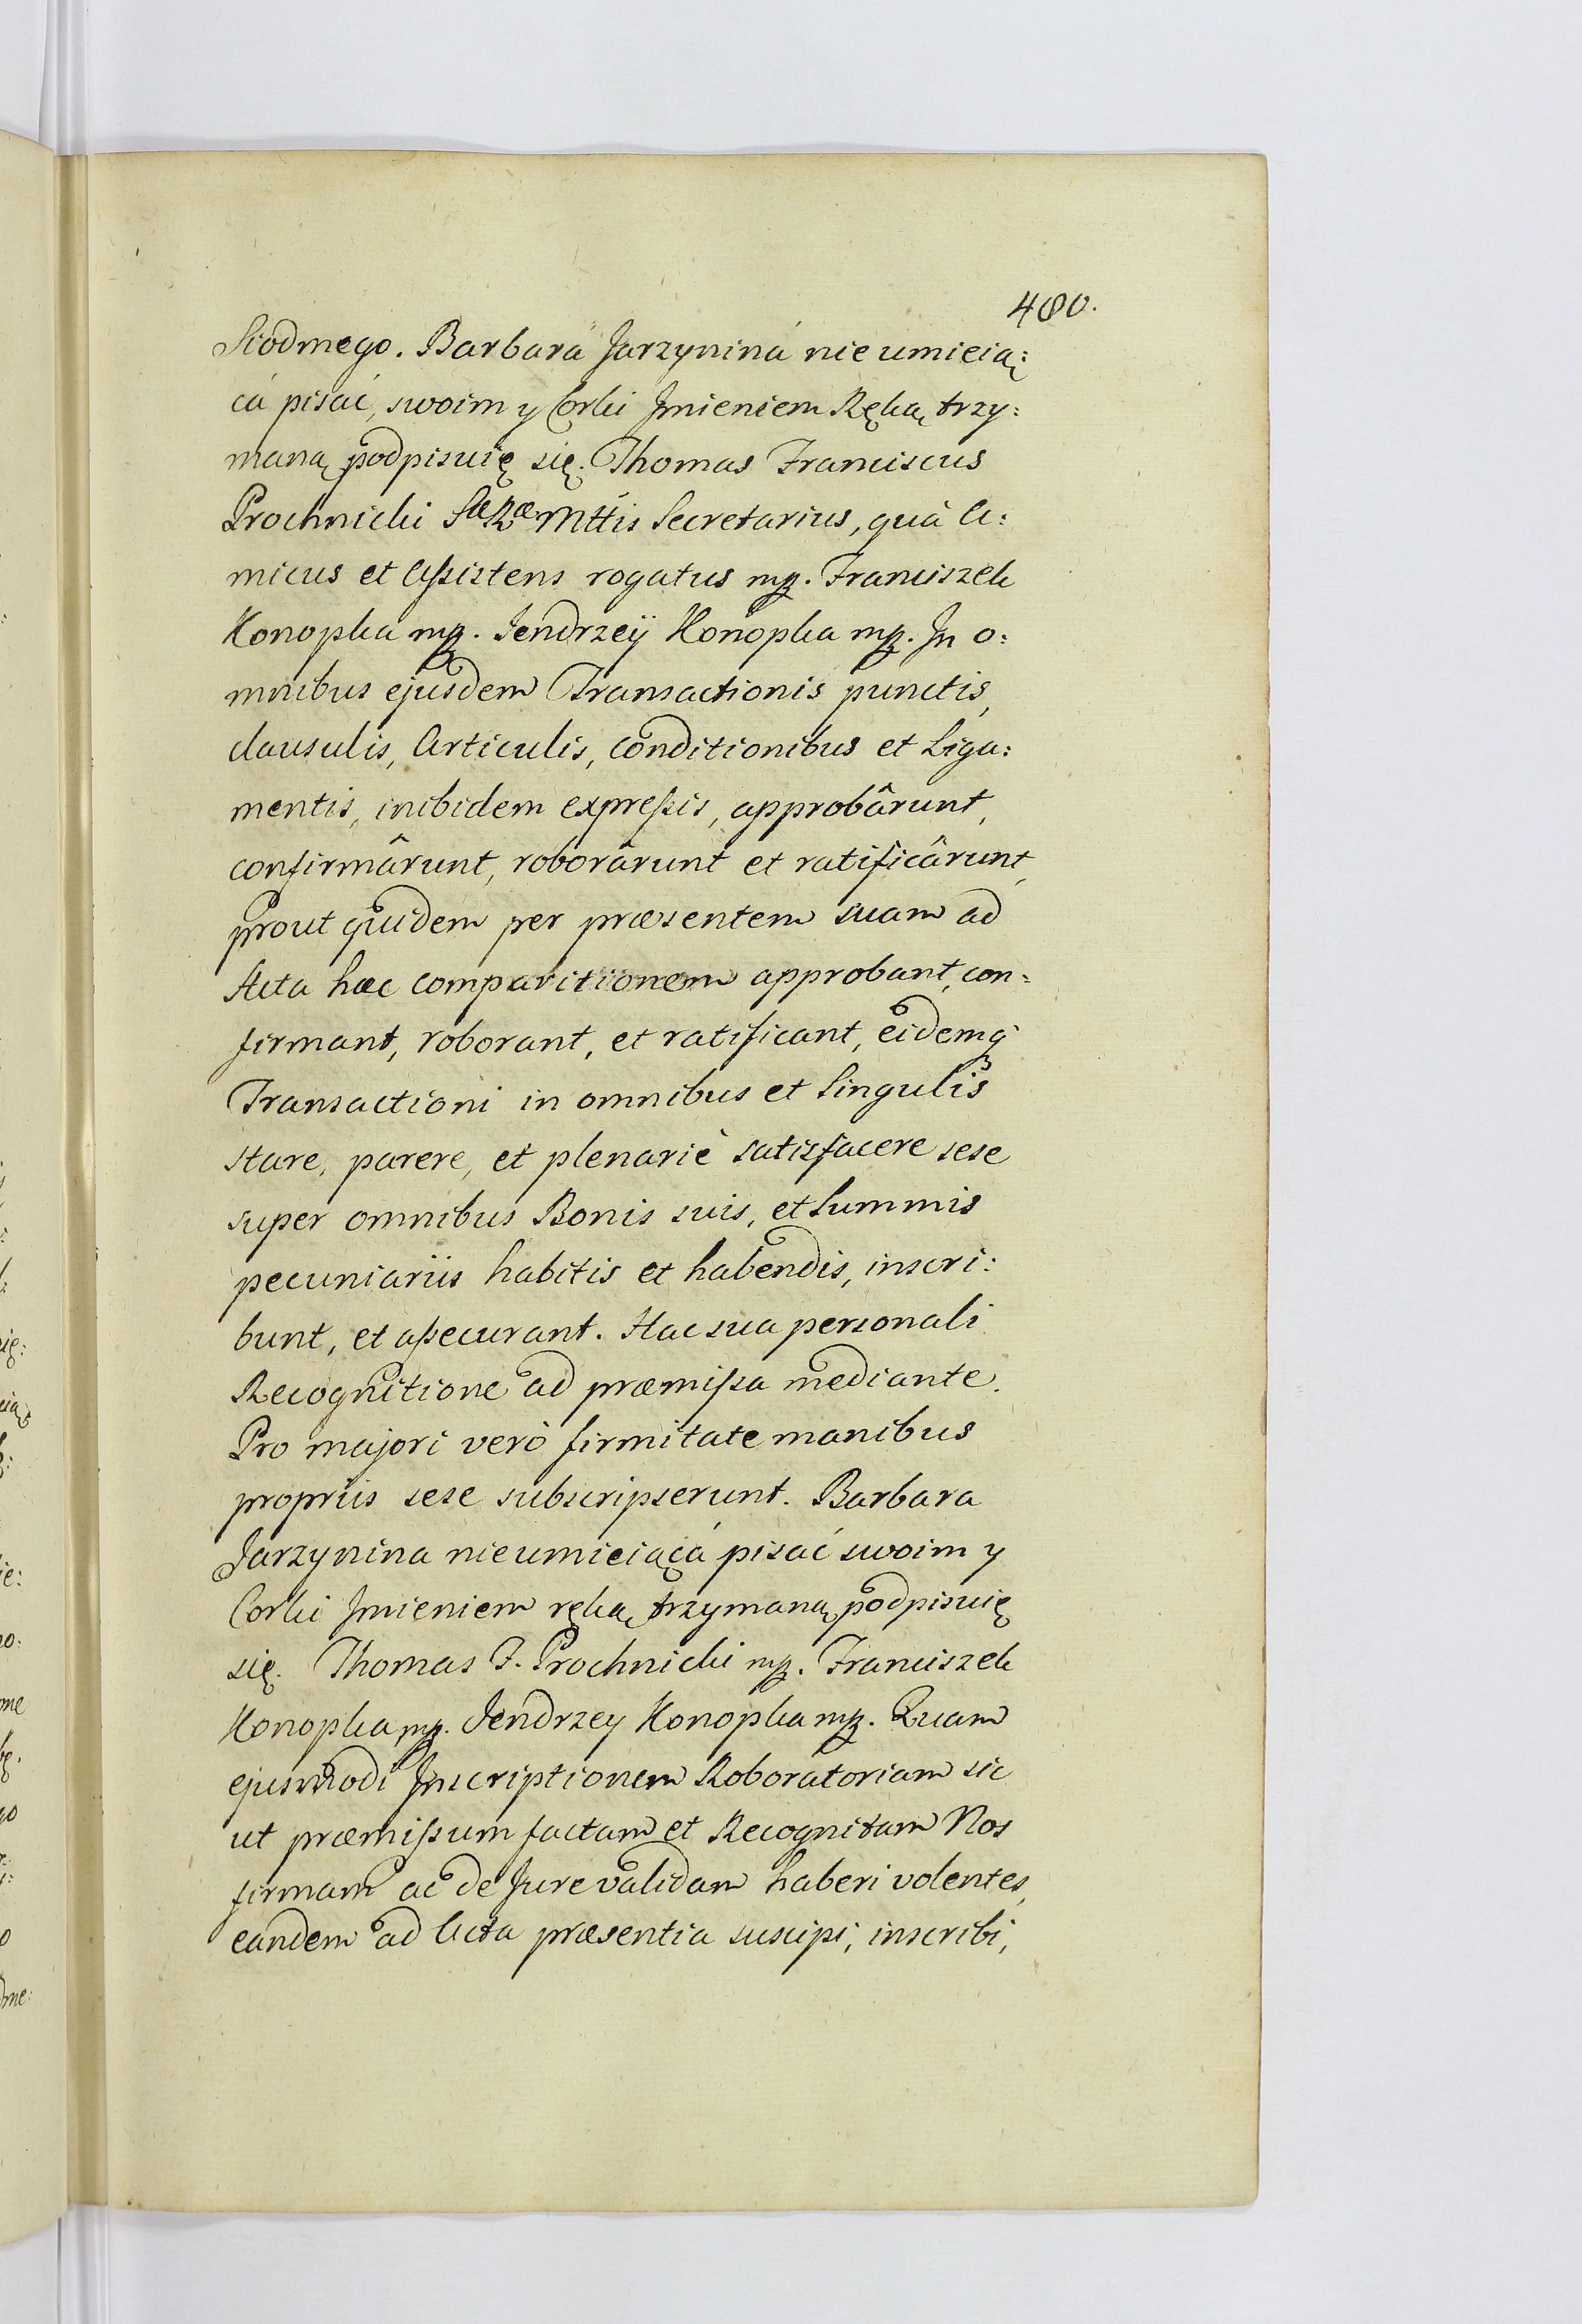 480.
Siodmego. Barbara Jarzynina nie umieią:
cá pisać, swoim y Corki Jmieniem Ręką trzy:
maną podpisuię się. Thomas Franciscus
Prochnicki Sæ Ræ Mttis Secretarius, quà A:
micus et Aßistens rogatus mp. Franciszek
Konopka mp. Jendrzeÿ Konopka mp. Jn o:
mnibus ejusdem Transactionis punctis,
clausulis, Articulis, Conditionibus et Liga:
mentis, inibidem expreßis, approbârunt,
confirmârunt, roborârunt et ratificârunt,
prout quidem per præsentem suam ad
Acta hæc comparitionem approbant, con:
firmant, roborant, et ratificant, eidemq
Transactioni in omnibus et Singulis
stare, parere, et plenariè satisfacere sese
super omnibus Bonis suis, et Summis
pecuniariis habitis et habendis, inscri:
bunt, et aßecurant. Hac sua personali
Recognitione ad præmißa mediante.
Pro majori verò firmitate manibus
propriis sese subscripserunt. Barbara
Jarzynina nie umieiącá pisać swoim y
Corki Jmieniem ręką trzymaną podpisuię
się. Thomas F. Prochnicki mp. Franciszek
Konopka mp. Jendrzey Konopka mp. Quam
ejusmodi Jnscriptionem Roboratoriam sic
ut præmißum factam et Recognitam Nos
firmam ac de Jure validam haberi volentes,
eandem ad Acta præsentia suscipi, inscribi,